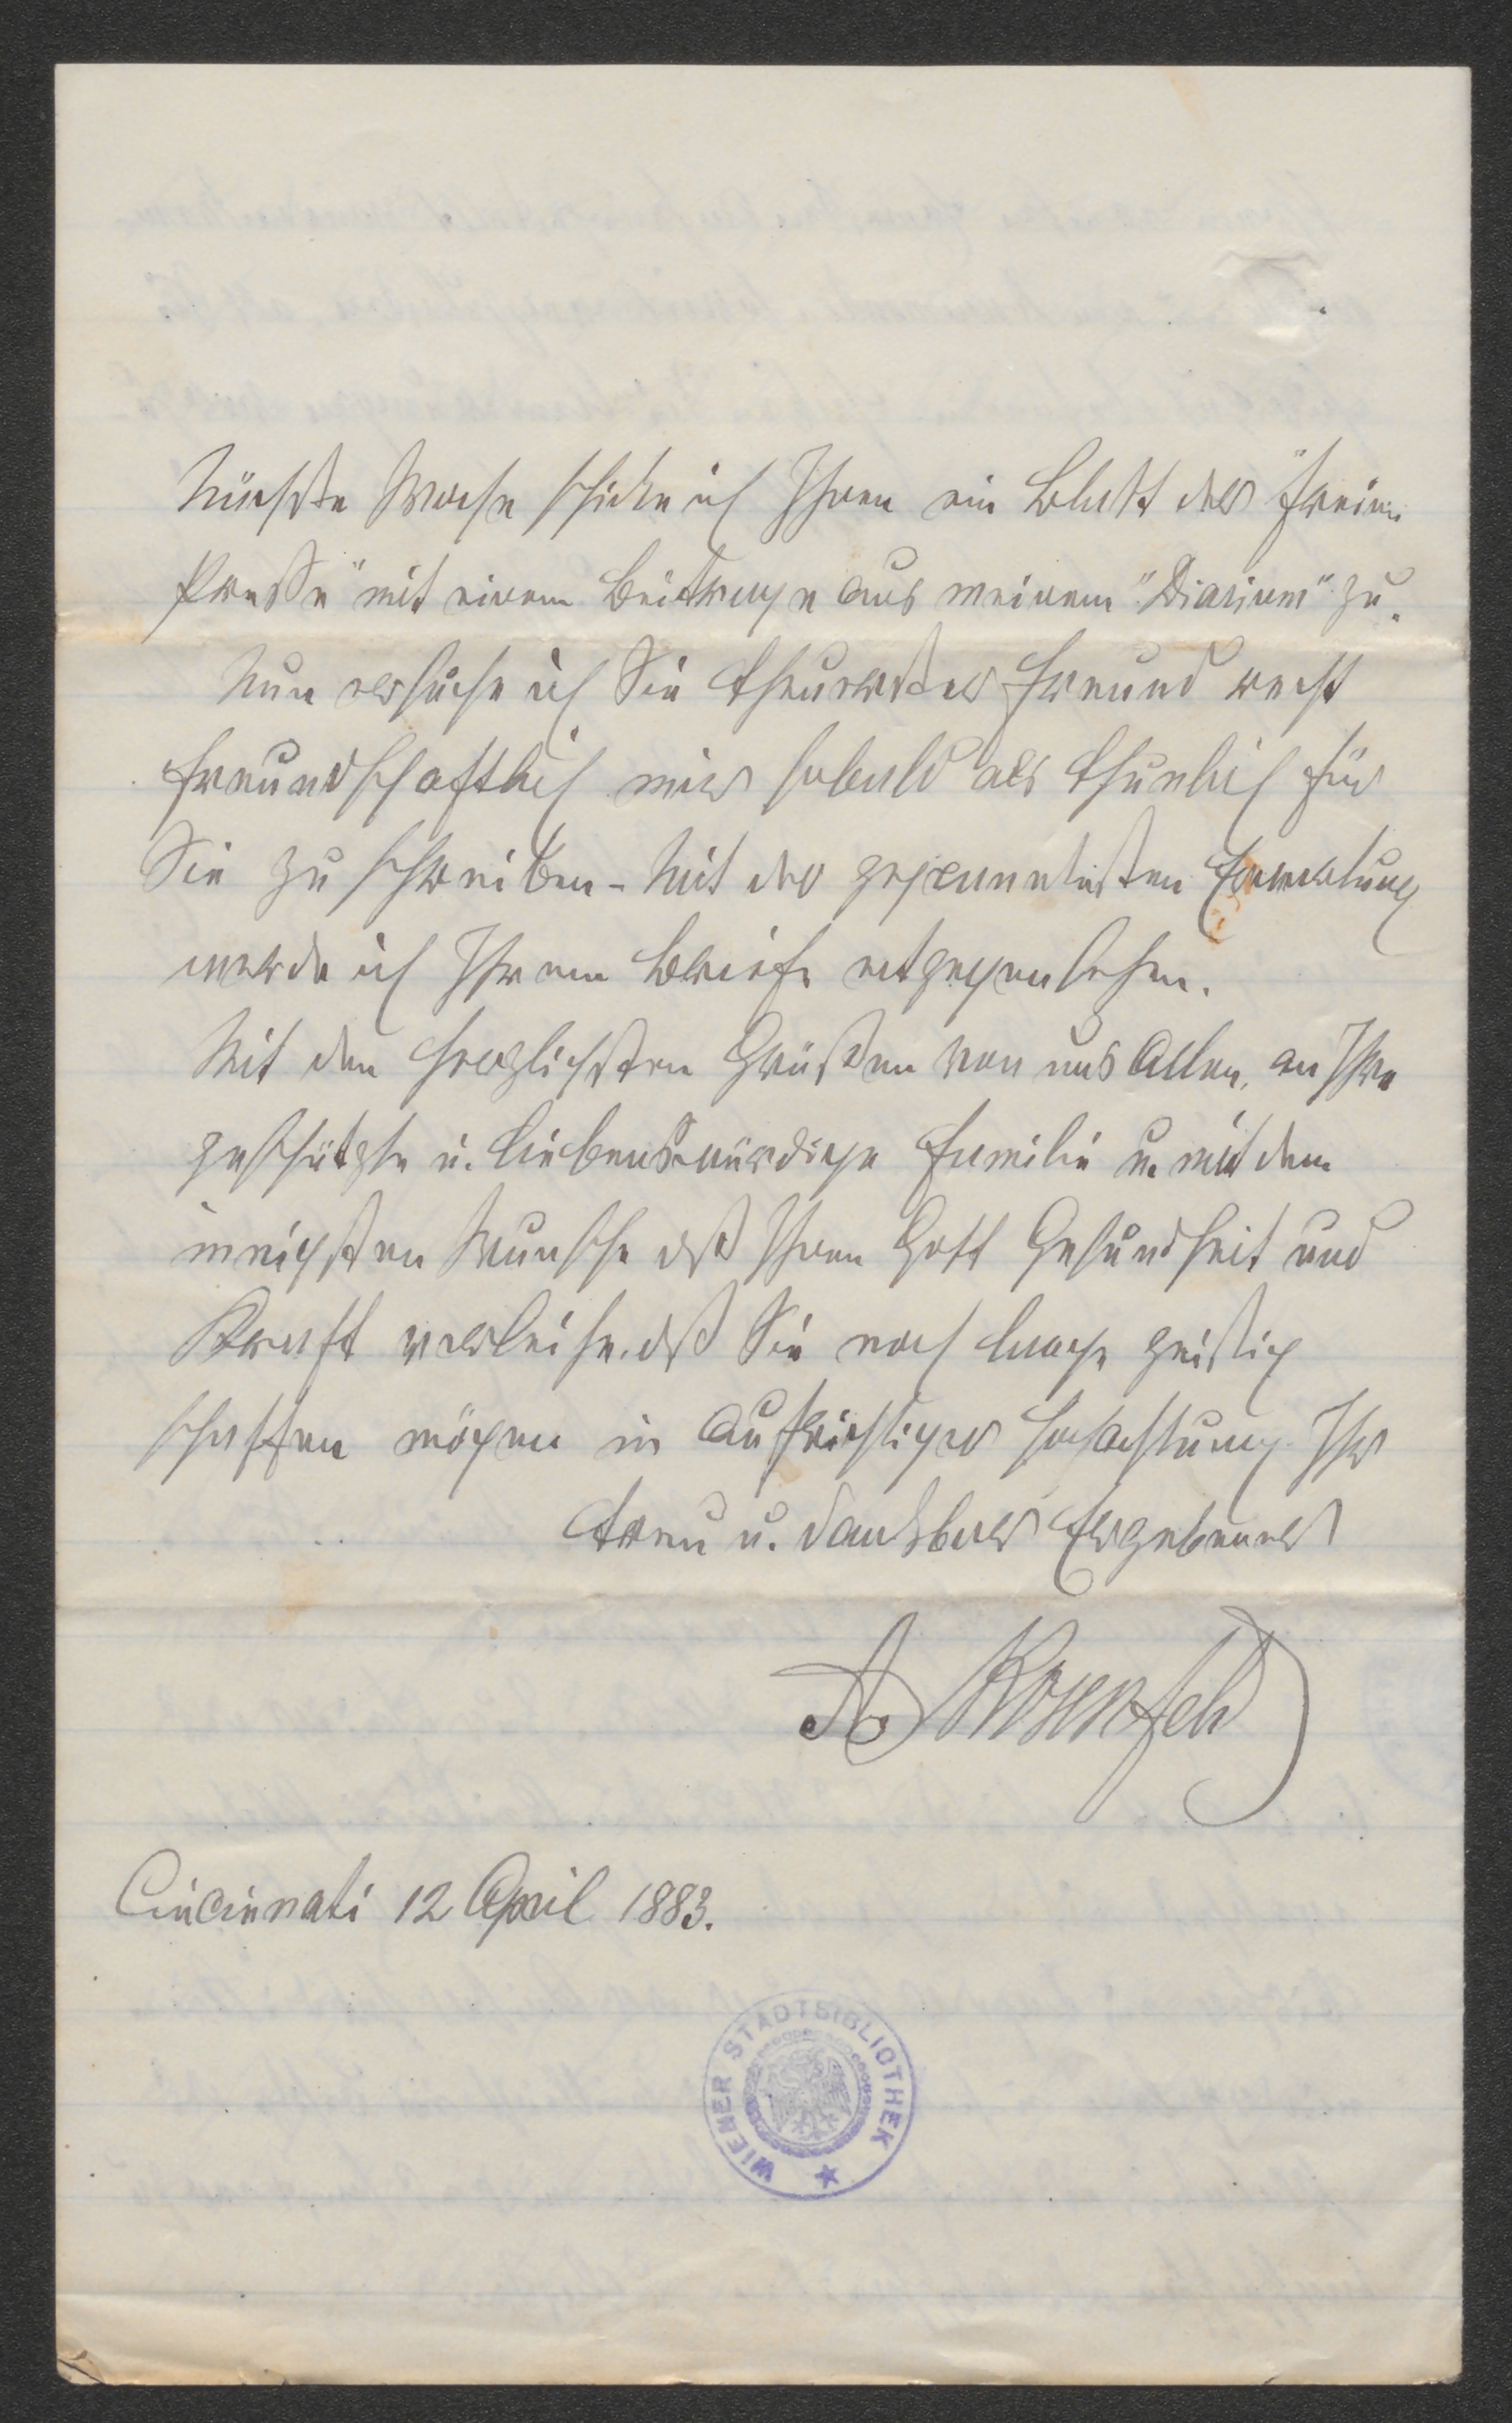 Nächste Woche schicke ich Ihnen ein Blatt der "Freien
Presse" mit einem Beitrage aus meinem "Diarium" zu.
Nun ersuche ich Sie theuerster Freund recht
freundschaftlich mir sobald als thunlich für
Sie zu schreiben - Mit der gespanntesten Erwartung
werde ich Ihrem Briefe entgegensehen.
Mit den herzlichsten Grüßen von uns Allen, an Ihre
geschätzte u. liebenswürdige Familie u. mit dem
innigsten Wunsche dß Ihnen Gott Gesundheit und
Kraft verleihe, dß Sie noch lange geistig
schaffen mögen in aufrichtiger Hochachtung Ihr
treu u. dankbar Ergebener
A. Rosenfeld
Cincinnati 12 April 1883.
WIENER STADTBIBLIOTHEK